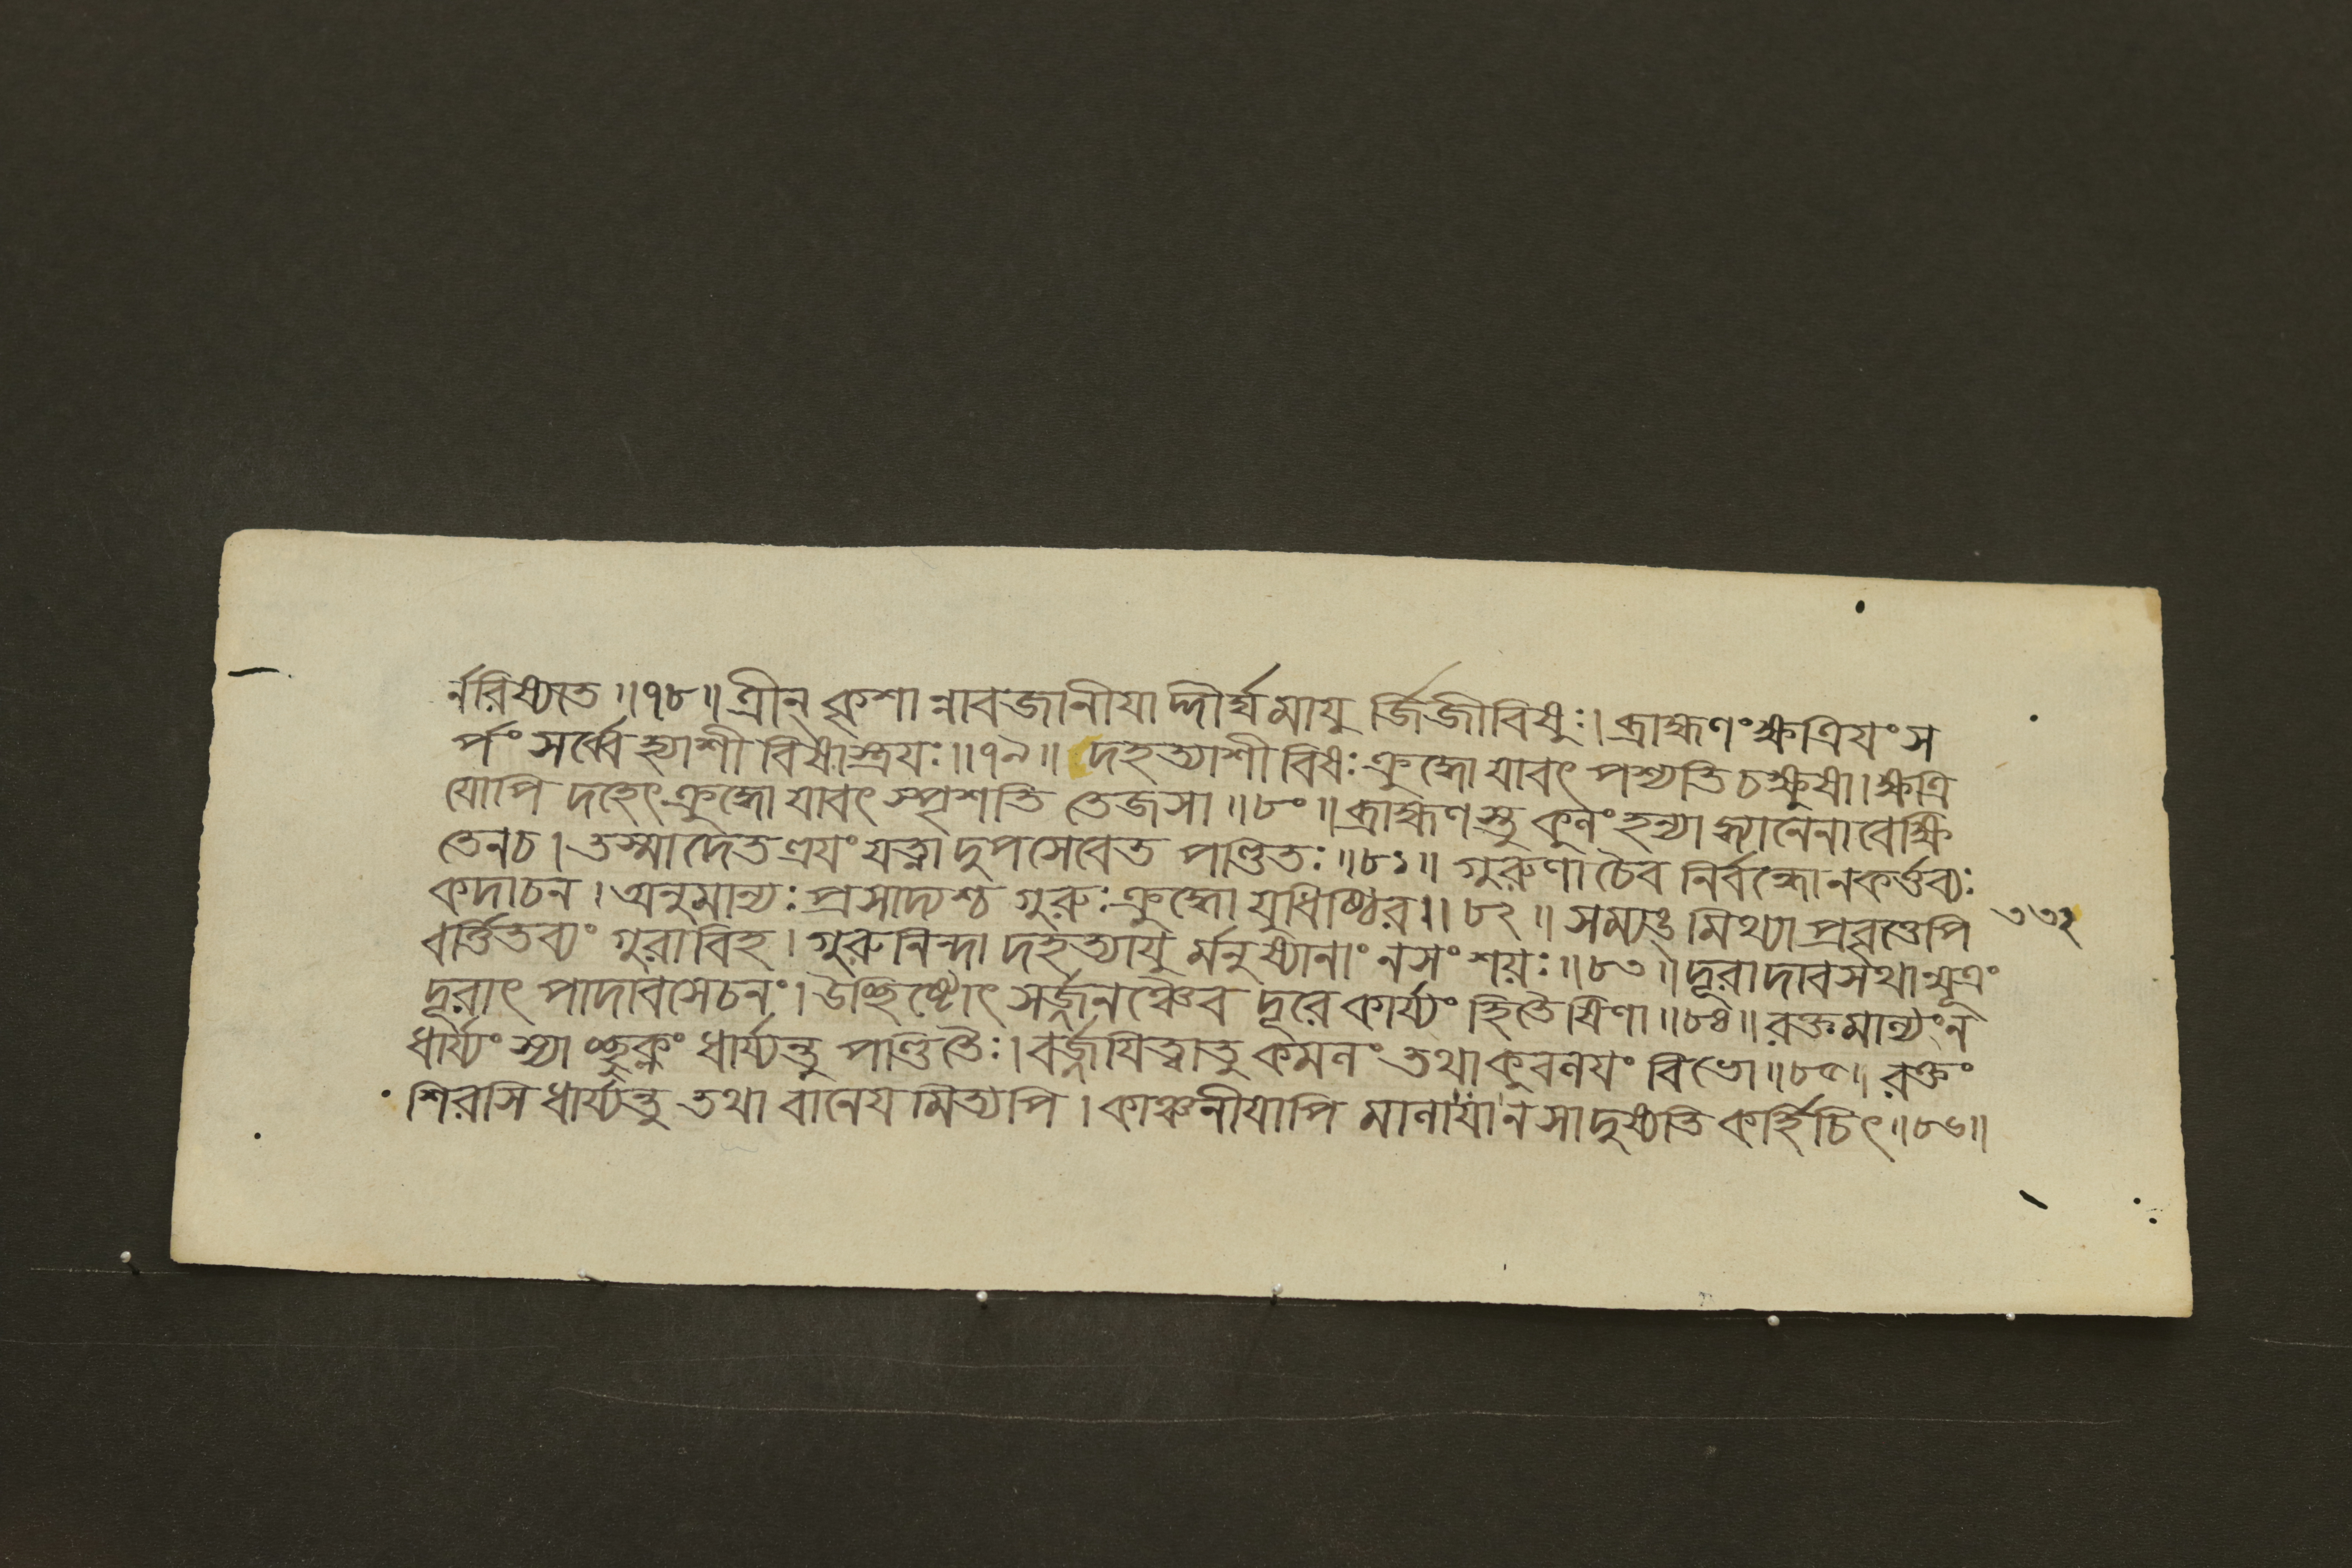 র্নরিষ্যতে ॥৭৮॥ ত্রীন্ কৃশা ন্নাবজানীযা দ্দীর্ঘমাযু র্জিজীবিষুঃ। ব্রাহ্মণং ক্ষত্রিযং স
র্পং সর্ব্বে হ্যাশী বিষাস্ত্রযঃ॥৭৯॥ দহত্যাশী বিষঃ ক্রুদ্ধো যাবৎ পশ্যতি চক্ষুষা। ক্ষত্রি
যোপি দহেৎ ক্রুদ্ধো যাবৎ স্পৃশতি তেজসা ॥৮০॥ ব্রাহ্মণস্তু কুলং হন্যা দ্ধ্যানেনাবেক্ষি
তেনচ। তস্মাদেতত্রযং যত্না দুপসেবেত পণ্ডিতঃ॥৮১॥ গুরুণা চৈব নির্বন্ধোনকর্ত্তব্যঃ
কদাচন। অনুমান্যঃ প্রসাদ্যশ্চ গুরুঃ ক্রুদ্ধো যুধিষ্ঠির॥৮২॥ সম্যঙ্ মিথ্যা প্রবৃত্তেপি
বর্ত্তিতব্যং গুরাবিহ। গুরুনিন্দা দহত্যাযু র্মনুষ্যানাং নসংশয়ঃ॥৮৩॥ দূরাদাবসথান্মূত্রং
দূরাৎ পাদাবসেচনং। উচ্ছিষ্টোৎ সর্জ্জনঞ্চৈব দূরে কার্য্যং হিতৈষিণা॥৮৪॥ রক্তমাল্যংন
ধার্য্যং স্যা চ্ছুক্লং ধার্য্যন্তু পণ্ডিতৈঃ। বর্জ্জযিত্বাতু কমলং তথাকুবলযং বিভো॥৮৫॥ রক্তং
শিরসি ধার্য্যন্তু তথা বানেয মিত্যপি। কাঞ্চনীযাপি মালাযান সাদুষ্যতি কর্হিচিৎ॥৮৬॥
৩৩২